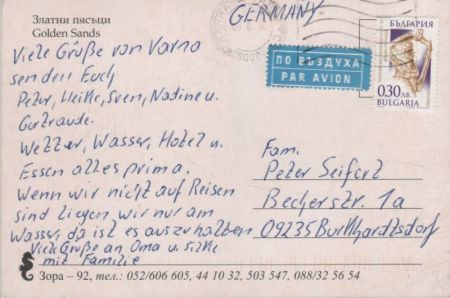 Златни пясъци
Golden Sands
GERMANY
9000
БЪЛГАРИЯ
0.30 лв.
BULGARIA
ПО ВЪЗДУХА
PAR AVION
Viele Grüße von Varna
senden Euch
Peter, Heike, Sven, Nadine u.
Gertraude.
Wetter, Wasser, Hotel u.
Essen alles prima.
Wenn wir nicht auf Reisen
sind liegen wir nur am
Wasser, da ist es auszuhalten
Viele Grüße an Oma u. Silke
mit Familie
Fam.
Peter Seifert
Becherstr. 1a
09235 Burkhardtsdorf
Зора – 92, тел.: 052/606 605, 44 10 32, 503 547, 088/32 56 54